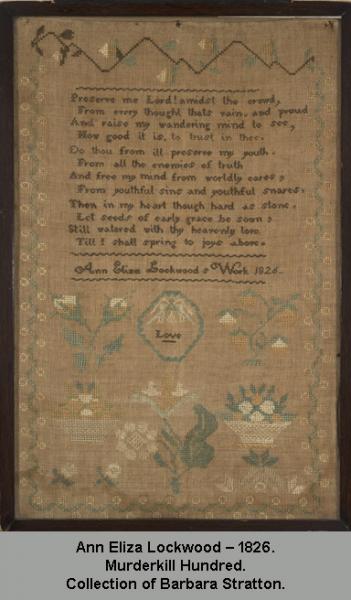 Preserve me Lord! amidst the crowd,
From every thought thats vain, and proud
And raise my wandering mind to see,
How good it is, to trust in thee.
Do thou from ill preserve my youth.
From all the enemies of truth
And free my mind from worldly cares;
From youthful sins and youthful snares.
Then in my heart though hard as stone.
Let seeds of early grace be sown;
Still watered with thy heavenly love
Till I shall spring to joys above.
Ann Eliza Lockwood s Work 1826.
Love
Ann Eliza Lockwood – 1826.
Murderkill Hundred.
Collection of Barbara Stratton.